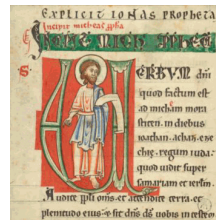 Explicit ionas propheta
Incipit micheas ppha
VERBVM dni
quod factum est
ad micham mora
sthen. in diebus
ioathan. achaz. eze
chie. regum iuda:
quod uidit super
samariam et ierlm.
Audite ppli oms. et attendite terra. et
plenitudo eius. & sit dns ds uobis in testem